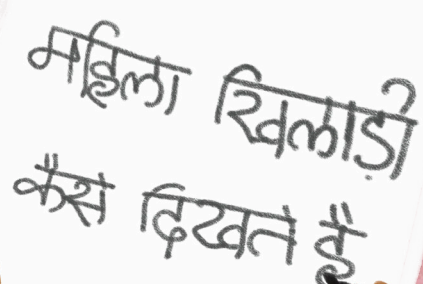 महिला खिलाड़ी
कैसे दिखते है